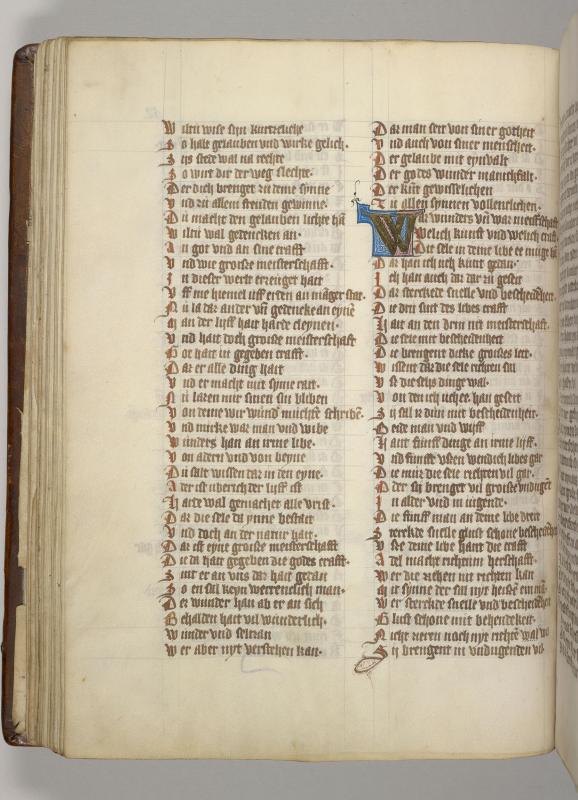 Wiltu wise sijn kurtzeliche
So halt gelauben vnd wirke gelich.
Sijs stede wal na rechte
So wirt dir der weg slechte.
Der dich brenget zu deme synne
Vnd zu allem freuden gewinne.
Du macht den gelauben lichte hā
Wiltu wal gedencken an.
An got vnd an sine crafft
Vnd wie groisse meisterschafft.
In dieser werlt erzeuget hait
Vff me hiemel uff erden an māger stat.
Nu la dar ander vn̄ gedencke an eynē
Man der lijff hait harde cleynen.
Vnd hait doch groisse meisterschafft
Got hait in gegeben crafft.
Dar er alle ding hait
Vnd er macht mit syme rait.
Nu lazen mir sinen sin bliben
Von deme wir wund muchtē schribē.
Vnd mirke waz man vnd wibe
Wunders han an irme libe.
Von adern vnd von beyne
Du salt wissen daz in den eyne.
Ader ist uberich der lijff ist
Harte wal gemachet alle vrist.
Daz die sele da ynne bestait
Vnd doch an der natur hait.
Daz ist eyne groisse meisterschafft
Die da hait gegeben die godes crafft.
Sint er an vns daz hait gedan
So en sal keyn werrenclich man.
Der wunder han ab er an sich
Behalden hait vil wunderlich.
Wunder vnd seltzan
Wer aber nyt verstehen kan.
Daz man seit von siner gotheit
Vnd auch von siner menscheit.
Der gelaube mit eynvalt
Der godes wunder manichfalt.
Der kūt gewisslichen
Zu allen synnen vollenclichen.
Waz wunders vn̄ waz meisschafft
Welich kunst vnd welich crafft
Die sele in deme libe ez muge hā
Daz han ich uch kunt gedan.
Ich han auch daz dar zu geseit
Daz sterckede snelle vnd bescheidenheit.
Die dru sint des libes crafft
Hait an den drin nit meisterschaft.
Die seie mit bescheidenheit
Die brengent dicke groisses leit.
Wissent daz die sele richten sal
Vz die sehs dinge wal.
Von den ich uch ee han geseit
Zu sal zu dun mit bescheidenheit.
Beide man vnd wijff
Hant funff dinge an irme lijff.
Vnd funffe vssen wendich libes gar
Die muz die sele richten vil gar.
Oder sij brenget vil groisse vndugēt
In alder vnd in iugende.
Die funff man an deme libe dreit
Sterckede snelle glust schone bescheidenheit
Vsse deme libe hant die crafft
Adel macht richtum herschafft.
Wer die ziehen nit richten kan
Mit synne der sal nyt heissē ein mā.
Wer sterckede snelle vnd bescheidenheit
Glust schone mit behendekeit.
Nicht zieren noch nyt richtē wal
Sij brengent in vndugenden vil